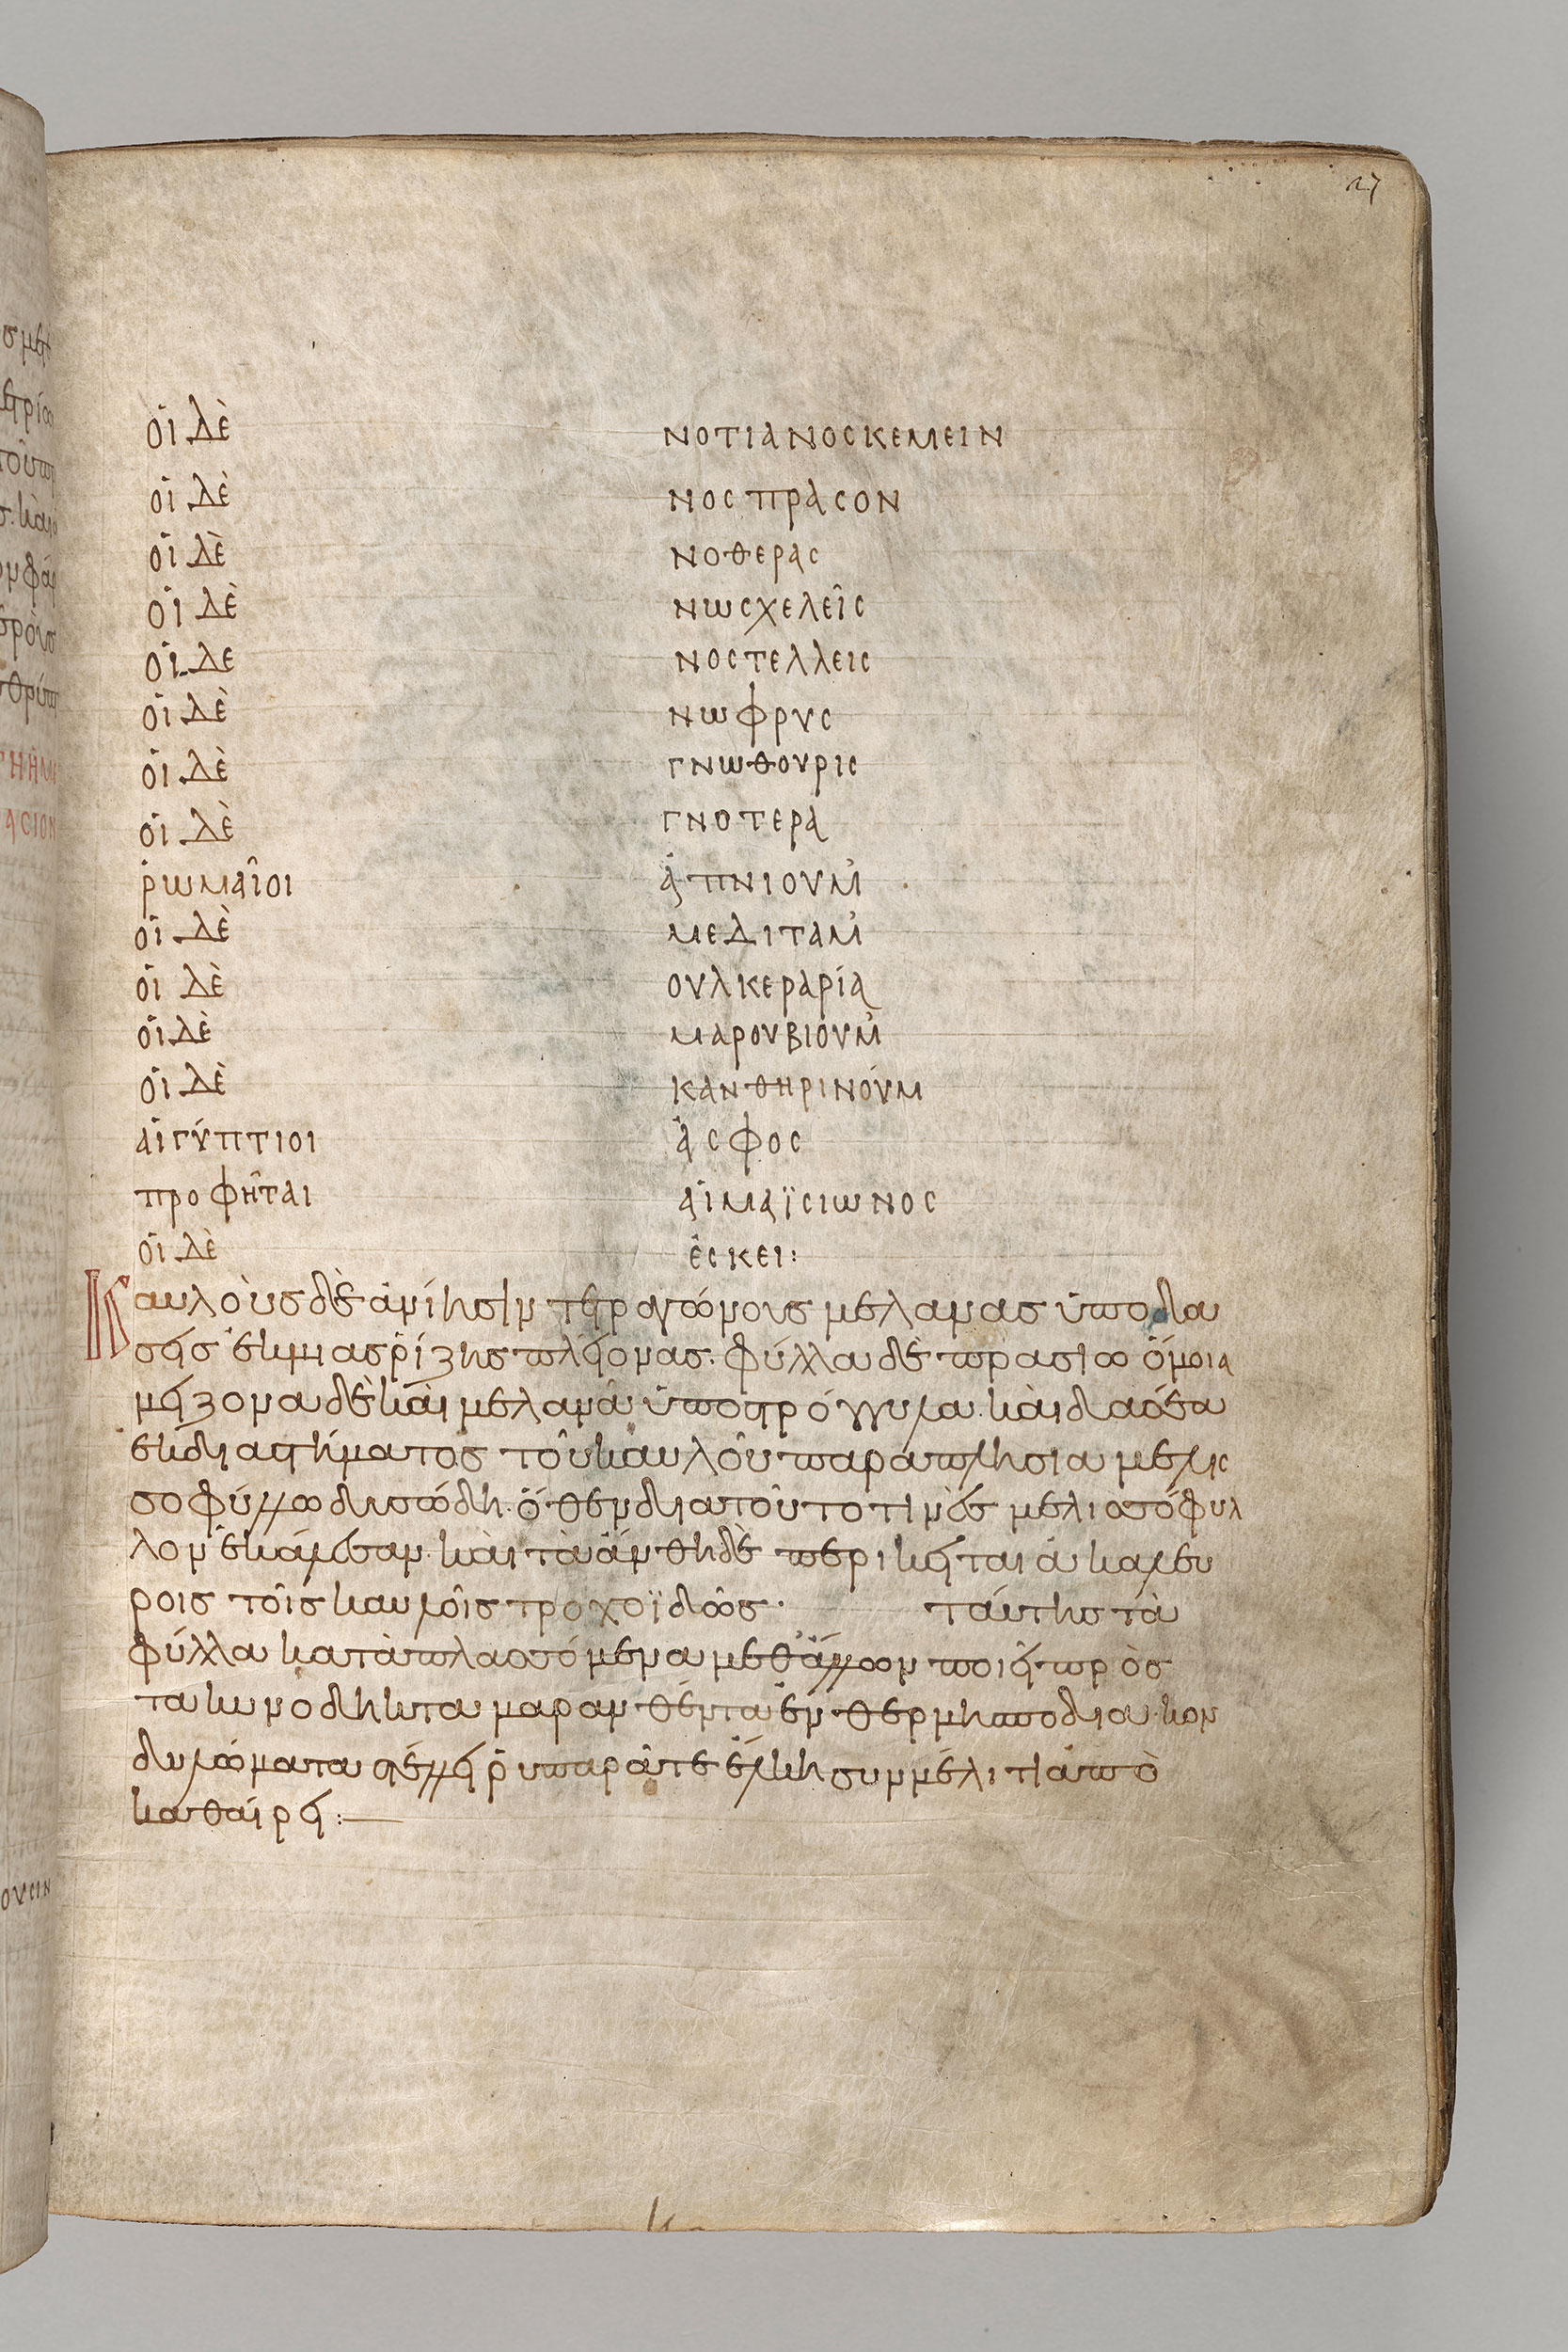 27
οἱ δὲ ΝΟΤΙΑΝΟϹΚΕΜΕΙΝ
οἱ δὲ ΝΟϹΠΡΑϹΟΝ
οἱ δὲ ΝΟΘΕΡΑϹ
οἱ δὲ ΝωϹΧΕΛΕῖϹ
οἱ δε ΝΟϹΤΕΛΛΕΙϹ
οἱ δὲ ΝωΦΡΥϹ
οἱ δὲ ΓΝωΘΟΥΡΙϹ
οἱ δὲ ΓΝΟΤΕΡΑ
ῥωμαῖοι ἀΠΝΙΟΥΜ
οἱ δὲ ΜΕΔΙΤΑΜ
οἱ δὲ ΟΥΛΚΕΡΑΡίΑ
οἱ δὲ ΜΑΡΟΥΒΙΟΥΜ
οἱ δὲ ΚΑΝΘΗΡΙΝΟύΜ
αἰγύπτιοι ἄϹΦΟϹ
προφῆται αἷΜΑϊϹΙωΝΟϹ
οἱ δὲ ἔϹΚΕΙ:
Καυλοὺσ δὲ ἀνίησιν τετραγώνουσ μελανασ ὑποδα
σεῖσ ἐκ μιασ ρίζησ πλείονασ. φύλλα δὲ πρασίω ὅμοια
μείζονα δὲ καὶ μελανα ὑποστρόγγυλα. καὶ δασέα
ἐκ διαστήματος τοῦ καυλοῦ παραπλησια μελις
σοφύλλω δυσώδη. ὅθεν δια τοῦτο τινὲσ μελισσόφυλ
λον ἐκάλεσαν. καὶ τὰ ἄνθη δὲ περικεῖται ἁ κα λευ
ροισ τοῖσ καυλοῖσ τροχοϊδῶσ. ταύτησ τὰ
φύλλα καταπλασσόμενα μεθ ἅλλων ποιεῖ πρὸσ
τα κυνοδηκτα μαρανθέντα ἐν θερμησποδια. κον
δυλώματα στέλλει ῥυπαρά τε ἕλκη συν μέλιτι ἀπὸ
καθαίρει: